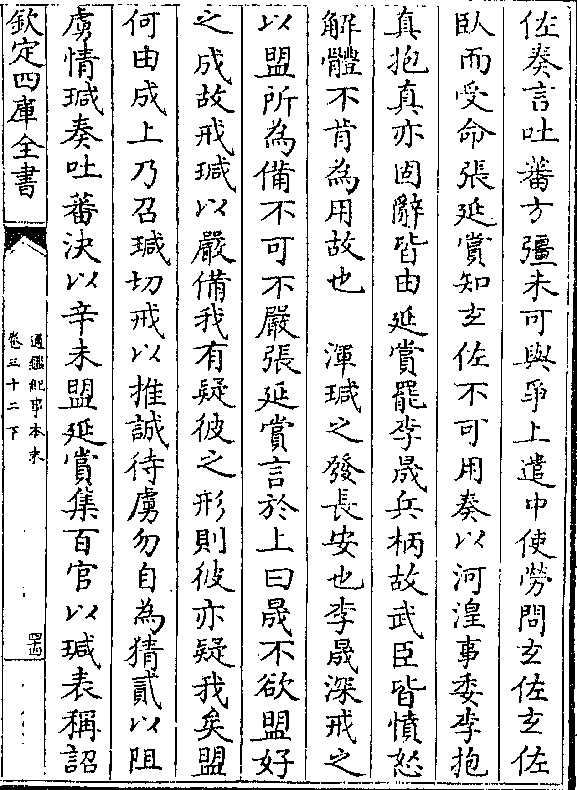 佐奏言吐蕃方彊未可與爭上遣中使勞問玄佐玄佐
臥而受命張延賞知玄佐不可用奏以河湟事委李抱
真抱真亦固辭皆由延賞罷李晟兵柄故武臣皆憤怒
解體不肯為用故也　渾瑊之發長安也李晟深戒之
以盟所為備不可不嚴張延賞言於上曰晟不欲盟好
之成故戒瑊以嚴備我有疑彼之形則彼亦疑我矣盟
何由成上乃召瑊切戒以推誠待虜勿自為猜貳以阻
虜情瑊奏吐蕃決以辛未盟延賞集百官以瑊表稱詔
欽定四庫全書
通鑑紀事本末
卷三十二下
四十四